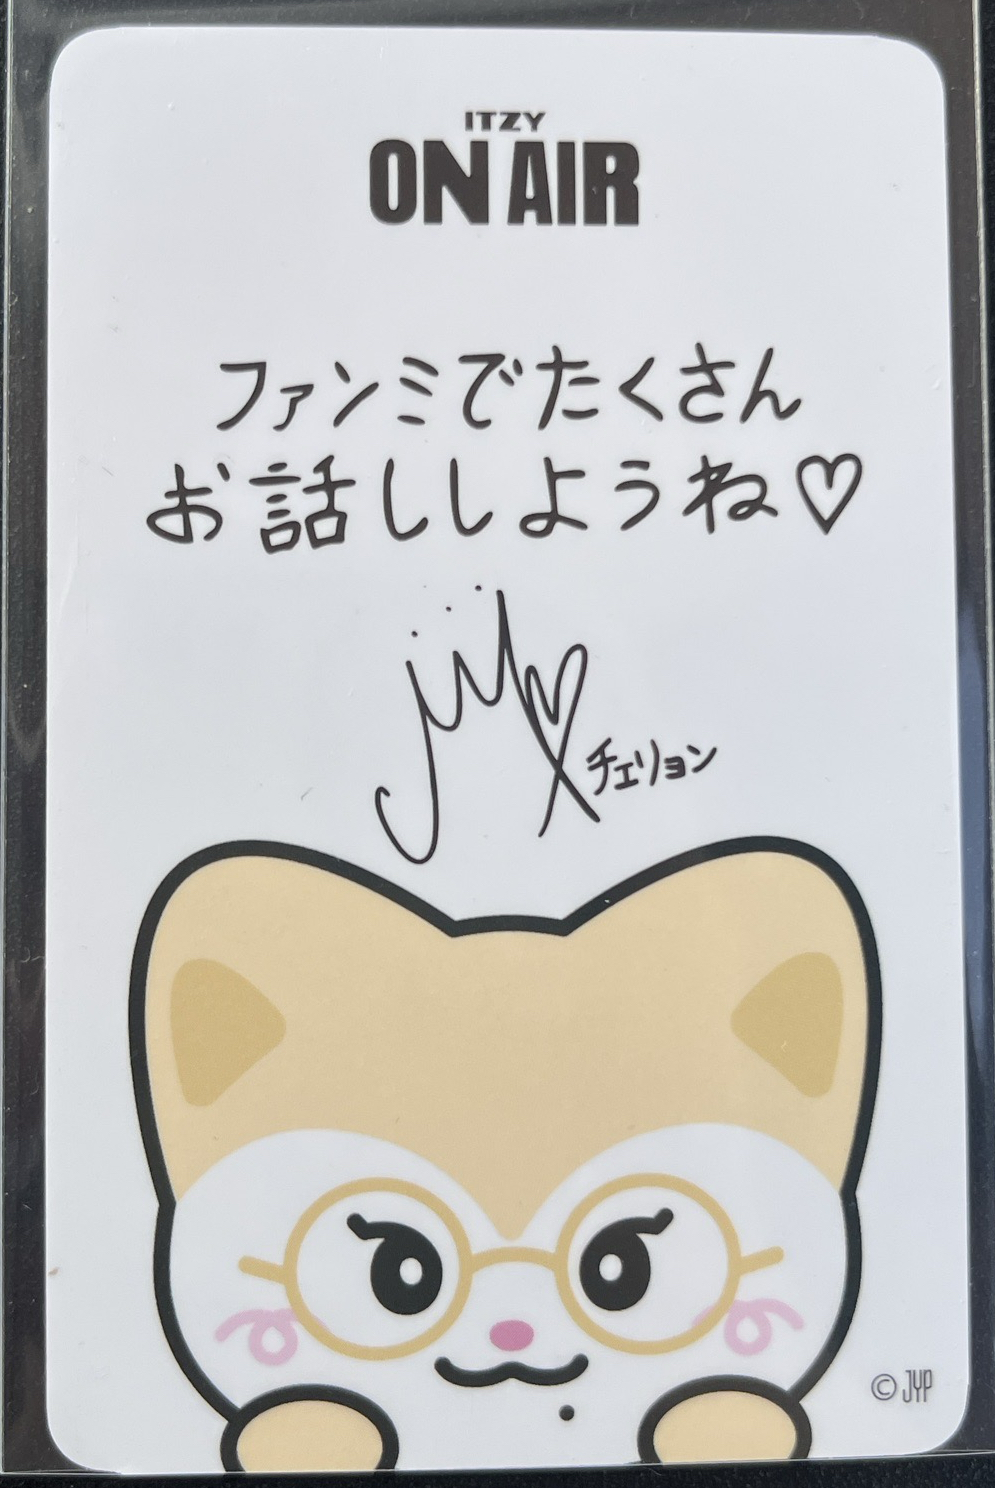 ITZY
ON AIR
ファンミでたくさん
お話ししようね♡
チェリョン
© JYP